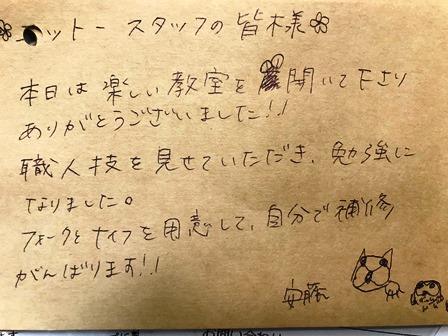 ニットー スタッフの皆様
本日は楽しい教室を開いて下さり
ありがとうございました!!
職人技を見せていただき、勉強に
なりました。
フォークとナイフを用意して、自分で補修
がんばります!!
安藤
お問い合わせ